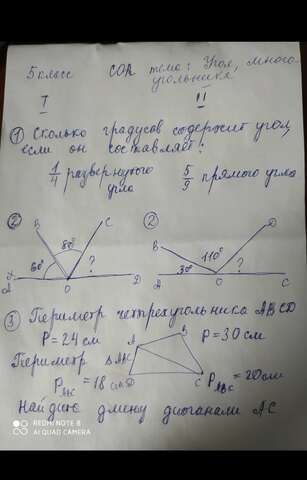 5 класс СОР тема: Угол, много-
угольника
I II
① Сколько градусов содержит угол,
если он составляет:
1/4 развернутого
угла
5/9 прямого угла
② ②
B C
80°
60° ?
A O D
B D
110°
30° ?
A O C
③ Периметр четырехугольника ABCD
P=24 см P=30 см
Периметр
A B
C D
=18 см P ABC =20 см
Найдите длину диагонали AC
REDMI NOTE 8
AI QUAD CAMERA